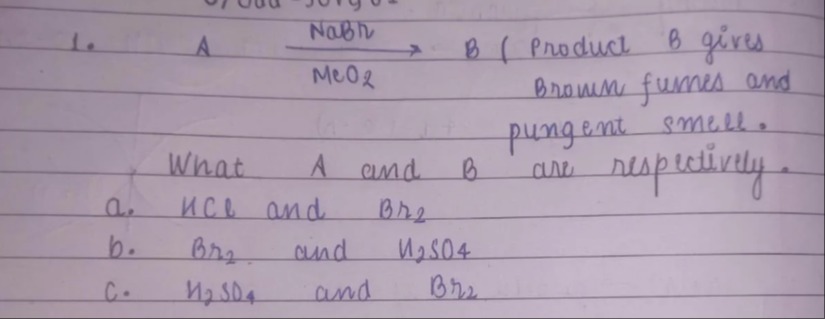 1. A NaBr B ( Product B gives
MeO2 Brown fumes and
pungent smell.
What A and B are respectively.
a. HCl and Br2
b. Br2 and H2SO4
c. H2SO4 and Br2